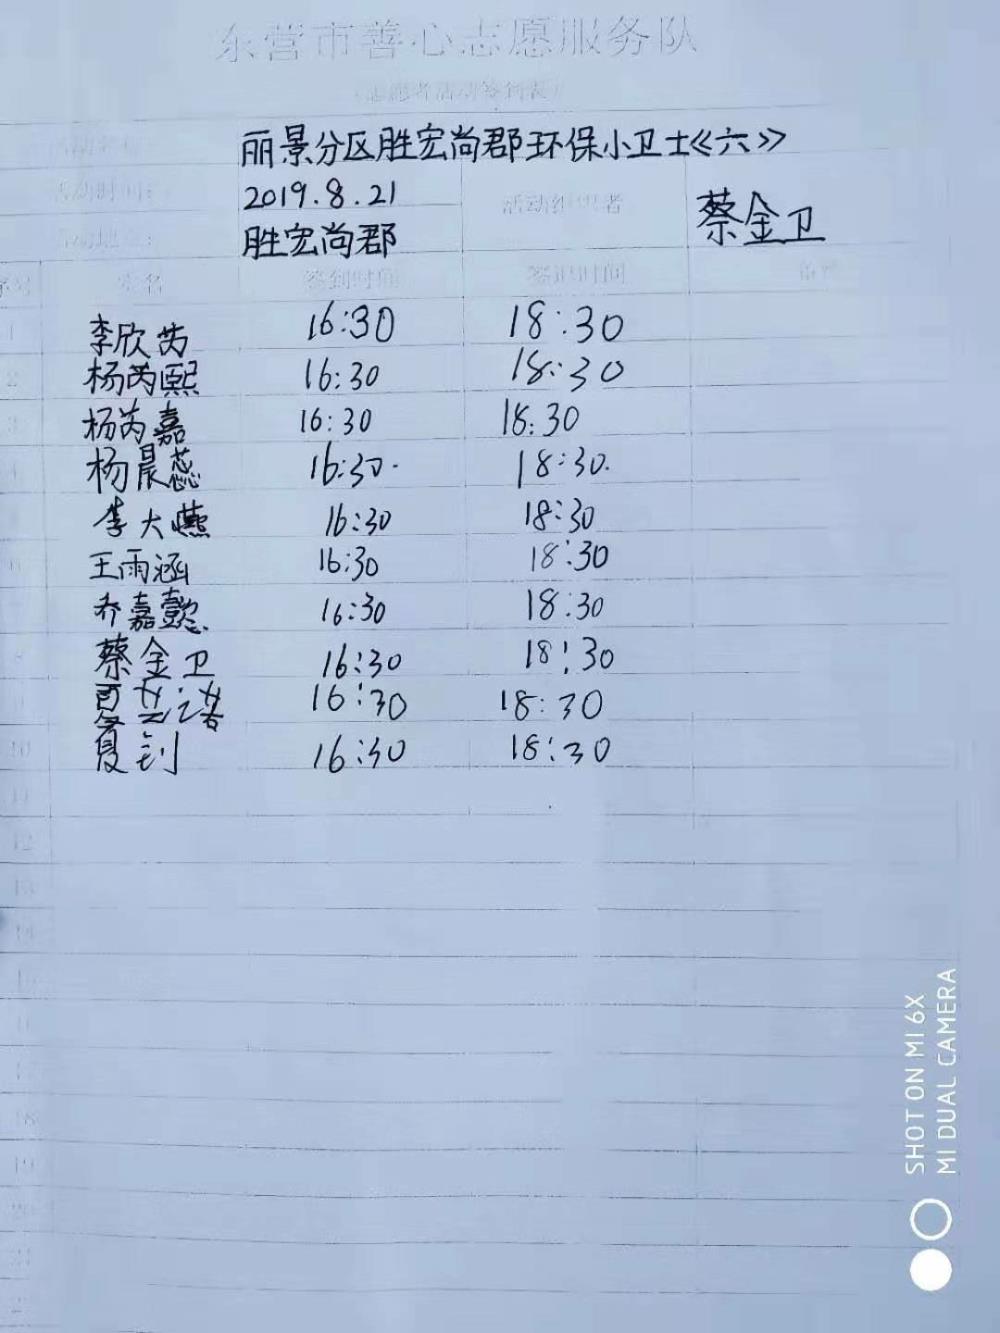 东营市善心志愿服务队
(志愿者活动签到表)
活动名称: 丽景分区胜宏尚郡环保小卫士《六》
活动时间: 2019.8.21 活动组织者 蔡金卫
活动地点: 胜宏尚郡
序号 姓名 签到时间 签退时间 备注
1 李欣芮 16:30 18:30
2 杨芮熙 16:30 18:30
3 杨芮嘉 16:30 18:30
4 杨晨蕊 16:30. 18:30.
5 李大燕 16:30 18:30
6 王雨涵 16:30 18:30
7 乔嘉懿 16:30 18:30
8 蔡金卫 16:30 18:30
9 16:30 18:30
10 夏钊 16:30 18:30
11
12
13
14
15
16
17
18
19
20
21
SHOT ON MI 6X
MI DUAL CAMERA